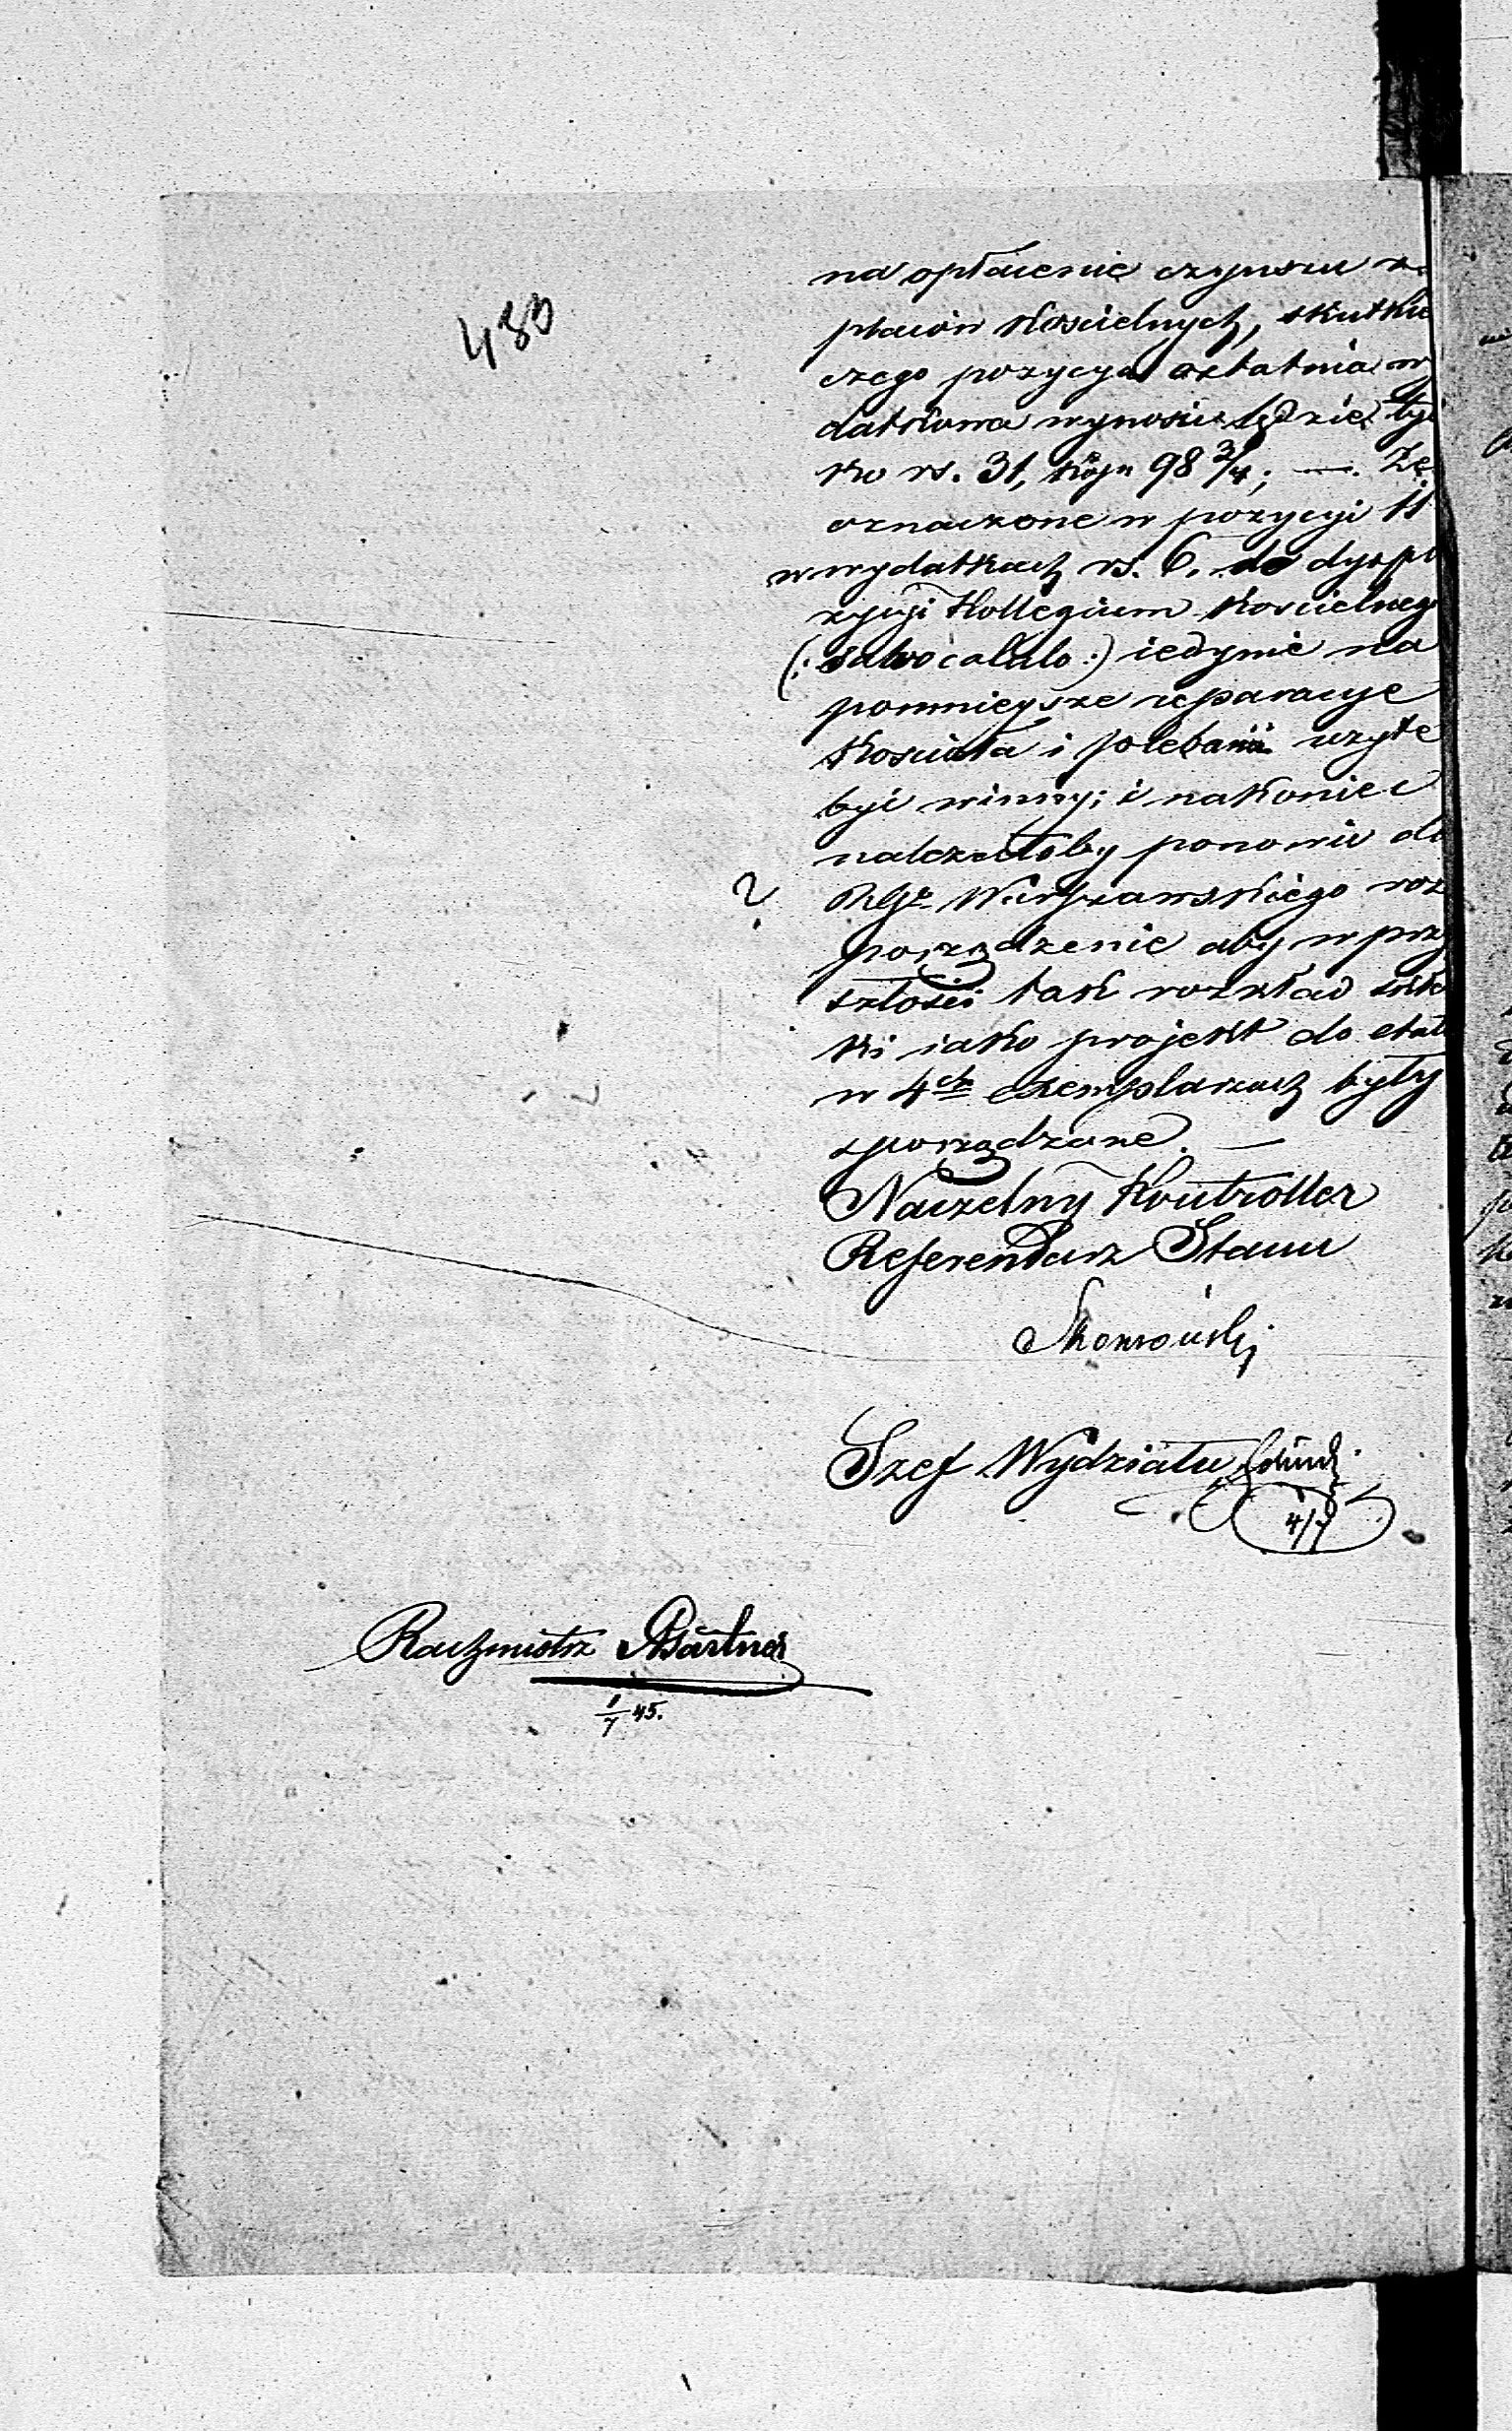 480
na opłacenie czynszu z
placów Kościelnych, skutkie
czego pozycya ostatnia wy
datkowa wynosić będzie tyl
ko rs. 31, kop. 98 3/4; —. Że
oznaczone w pozycyi 11
w wydatkach rs. 6. do dyspo
zycyi Kollegium Kościelnego
(: salvo calculo :) iedynie na
pomnieysze reparacye
Kościoła i plebanii użyte
być winny; i nakoniec
należałoby ponowić do
? RGu Warszawskiego roz
porządzenie aby w przy
szłości tak rozkład skła
ki iako projekt do etatu
w 4ch exemplarzach były
sporządzone. —
Naczelny Kontroller
Referendarz Stanu
Szef Wydziału
4/7
Rachmistrz
1/7 45.